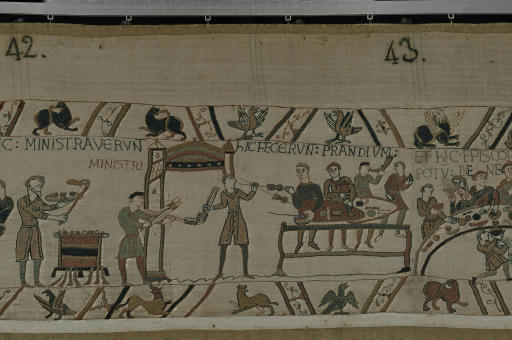 42.
43.
HIC: MINISTRAVERVN
MINISTRI
hIC FECERVN: PRANDIVM:
ET hIC EPISCO
POTV: DE NE